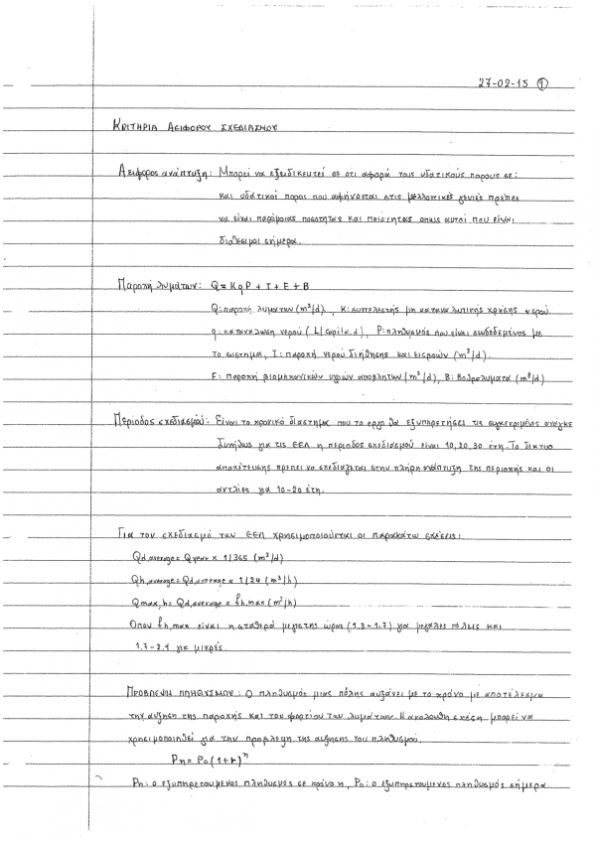 27-02-15 ①
ΚΡΙΤΗΡΙΑ ΑΕΙΦΟΡΟΥ ΣΧΕΔΙΑΣΜΟΥ
Αειφορος αναπτυξη: Μπορεί να εξειδικευτεί σε οτι αφορά τους υδατικούς πορους σε:
και υδατικοί ποροι που αφήνονται στις μελλοντικές γενιές πρέπει
να είναι παρόμοιας ποσότητας και ποιότητας οπως αυτοί που είναι
διαθεσιμοι σήμερα.
Παροχή λυμάτων: Q = KqP + I + E + B
Q: παροχή λυμάτων (m³/d), K: συντελεστής μη καταναλωτικής χρήσης νερού
q: κατανάλωση νερού (L/capita.d), P: πληθυσμός που είναι συνδεδεμένος με
το συστημα, I: παροχή νερού διήθησης και εισροών (m³/d).
E: παροχή βιομηχανικών υγρών αποβλητων (m³/d), B: βοθρολυματα (m³/d)
Περίοδος σχεδιασμού: Είναι το χρονικό διαστημα που το εργο θα εξυπηρετήσει τις συγκεκριμένες ανάγκες
Συνήθως για τις ΕΕΛ η περίοδος σχεδιασμού είναι 10, 20, 30 έτη. Το δικτυο
αποχέτευσης πρέπει να σχεδιάζεται στην πλήρη ανάπτυξη της περιοχής και οι
αντλίες για 10-20 έτη.
Για τον σχεδιασμό των ΕΕΛ χρησιμοποιούνται οι παρακάτω σχέσεις:
Qd,average = Qyear × 1/365 (m³/d)
Qh,average = Qd,average × 1/24 (m³/h)
Qmax,h = Qd,average × fh,max (m³/h)
Οπου fh,max είναι η σταθερά μεγιστης ώρας (1.3-1.7) για μεγάλες πόλεις και
1.7-2.4 για μικρές.
ΠΡΟΒΛΕΨΗ ΠΛΗΘΥΣΜΟΥ: Ο πληθυσμός μιας πόλης αυξάνει με το χρόνο με αποτέλεσμα
την αυξηση της παροχής και του φορτίου των λυμάτων. Η ακολουθη σχέση μπορεί να
χρησιμοποιηθεί για την προβλεψη της αυξησης του πληθυσμού.
Pn = P₀(1+r)ⁿ
Pn: ο εξυπηρετουμενος πληθυσμός σε χρόνο n, P₀: ο εξυπηρετουμενος πληθυσμός σήμερα